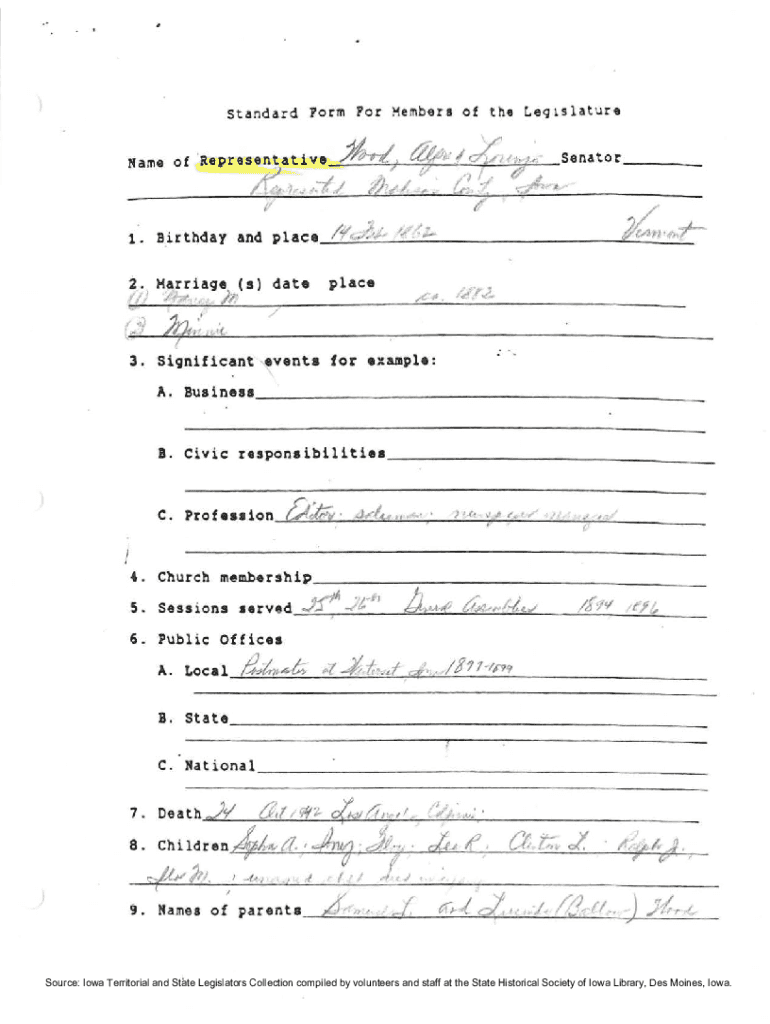 Standard Form For Members of the Legislature
Name of Representative Wood, Alfred Lorenzo Senator
Represented Madison County, Iowa
1. Birthday and place 14 Feb 1862 Vermont
2. Marriage (s) date place
(1) M ca. 1882
(2) Minnie
3. Significant events for example:
A. Business
B. Civic responsibilities
C. Profession Editor; salesman; newspaper
4. Church membership
5. Sessions served 25th 26th General Assemblies 1894 1896
6. Public Offices
A. Local Postmaster at Winterset Iowa 1897-1899
B. State
C. National
7. Death 24 Oct 1942 Los Angeles, California
8. Children A.; Inez; Leo R.; Clinton L.; Ralph J.;
M.; unnamed child died
9. Names of parents Samuel L. and Lucinda (Ballow) Wood
Source: Iowa Territorial and State Legislators Collection compiled by volunteers and staff at the State Historical Society of Iowa Library, Des Moines, Iowa.